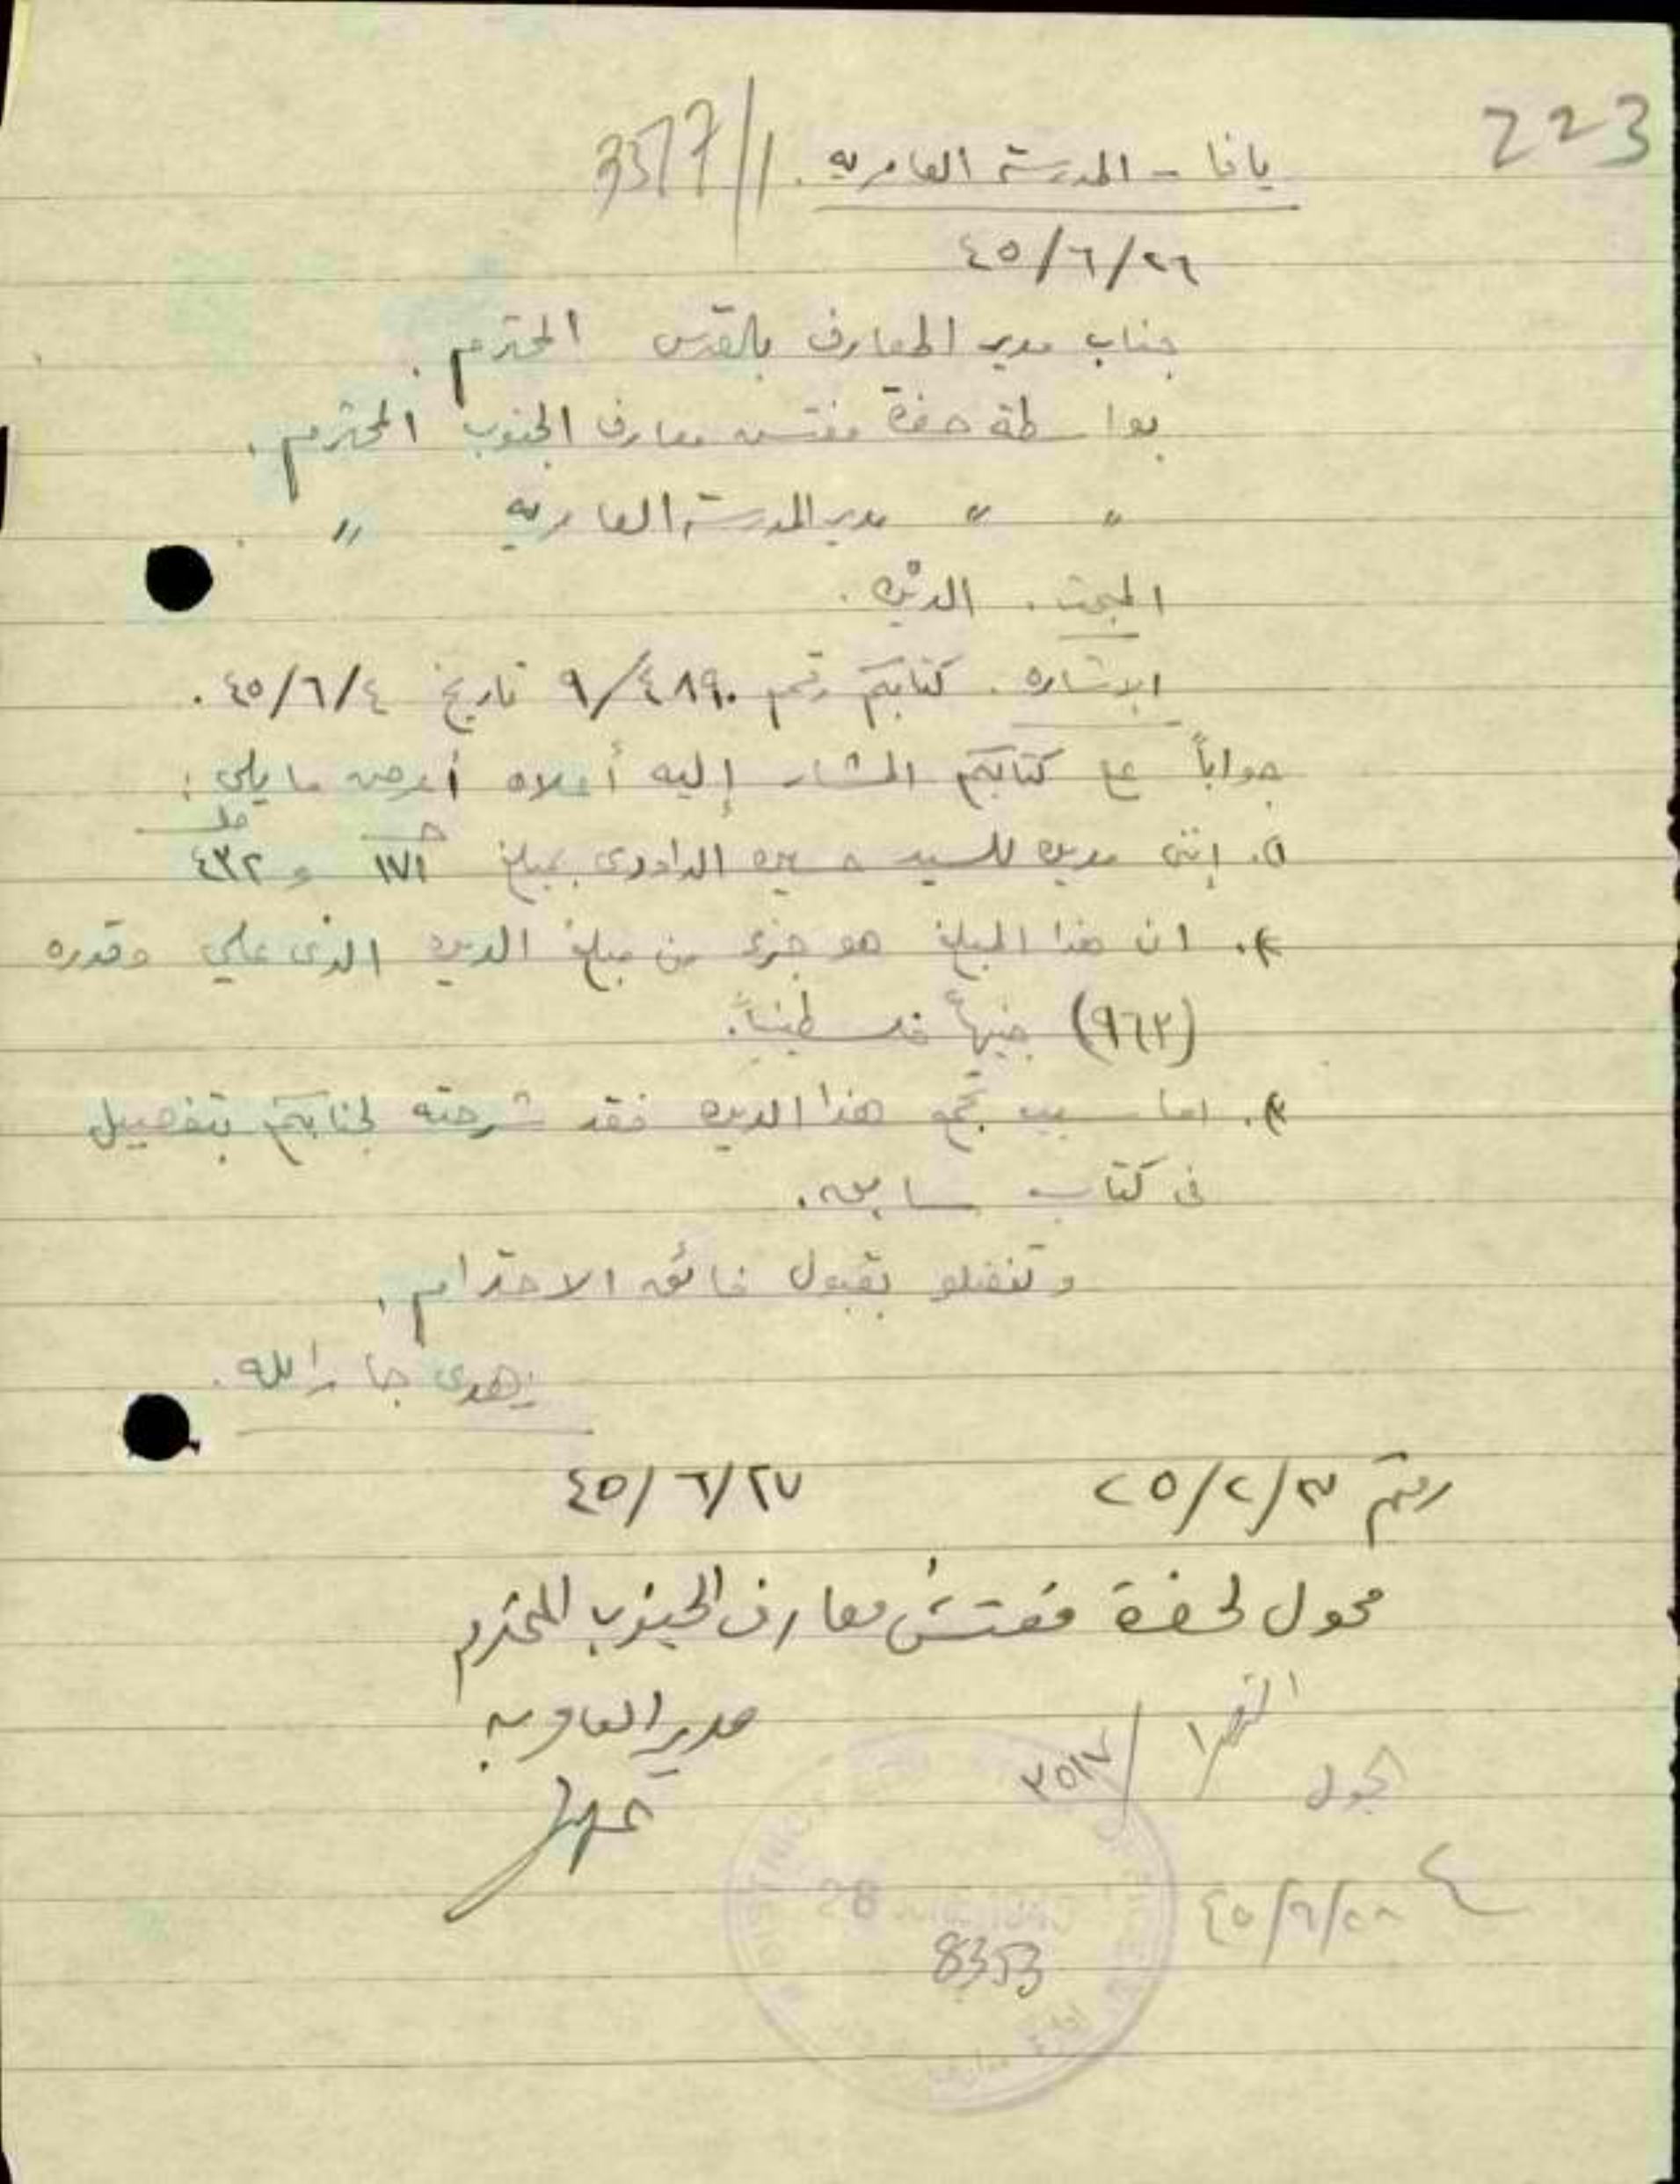 223
يافا - المدرسة العامريه. 3517/1
٤٥/٦/٢٦
جناب مدير المعارف بالقدس المحترم.
بواسطة حضرة مفتش معارف الجنوب المحترم.
" " مدير المدرسة العامريه " .
المبحث. الدين.
الاشاره. كتابكم رقم ٩/٤٨٩٠ تاريخ ٤٥/٦/٤.
جواباً على كتابكم المشار إليه أعلاه أعرض ما يلي:
١. إنني مدين للسيد حسين الداودي بمبلغ ١٧١ جـ و ٤٣٢ مل
٢. ان هذا المبلغ هو جزء من مبلغ الدين الذي علي وقدره
(٩٦٢) جنيهاً فلسطينياً.
٣. اما سبب تجمع هذا الدين فقد شرحته لجنابكم بتفصيل
في كتاب سابق.
وتفضلو بقبول فائق الاحترام.
زهدي جارالله.
رقم ٢٥/٢/٣ ٤٥/٦/٢٧
محول لحضرة مفتش معارف الجنوب المحترم
مدير العامريه
٣٥١٧/١
٤٥/٦/٢٨
28
8353